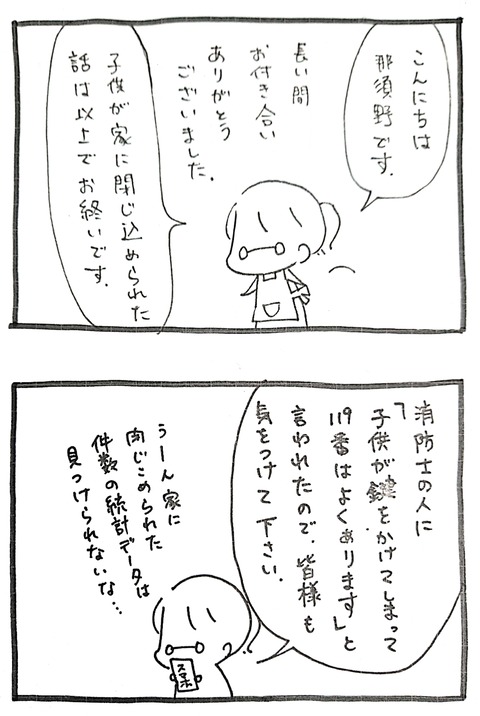 こんにちは
那須野です.
長い間
お付き合い
ありがとう
ございました.
子供が家に閉じ込められた
話は以上でお終いです.
消防士の人に
「子供が鍵をかけてしまって
119番はよくあります」と
言われたので.皆様も
気をつけて下さい.
うーん家に
閉じこめられた
件数の統計データは
見つけられないな…
スマホ